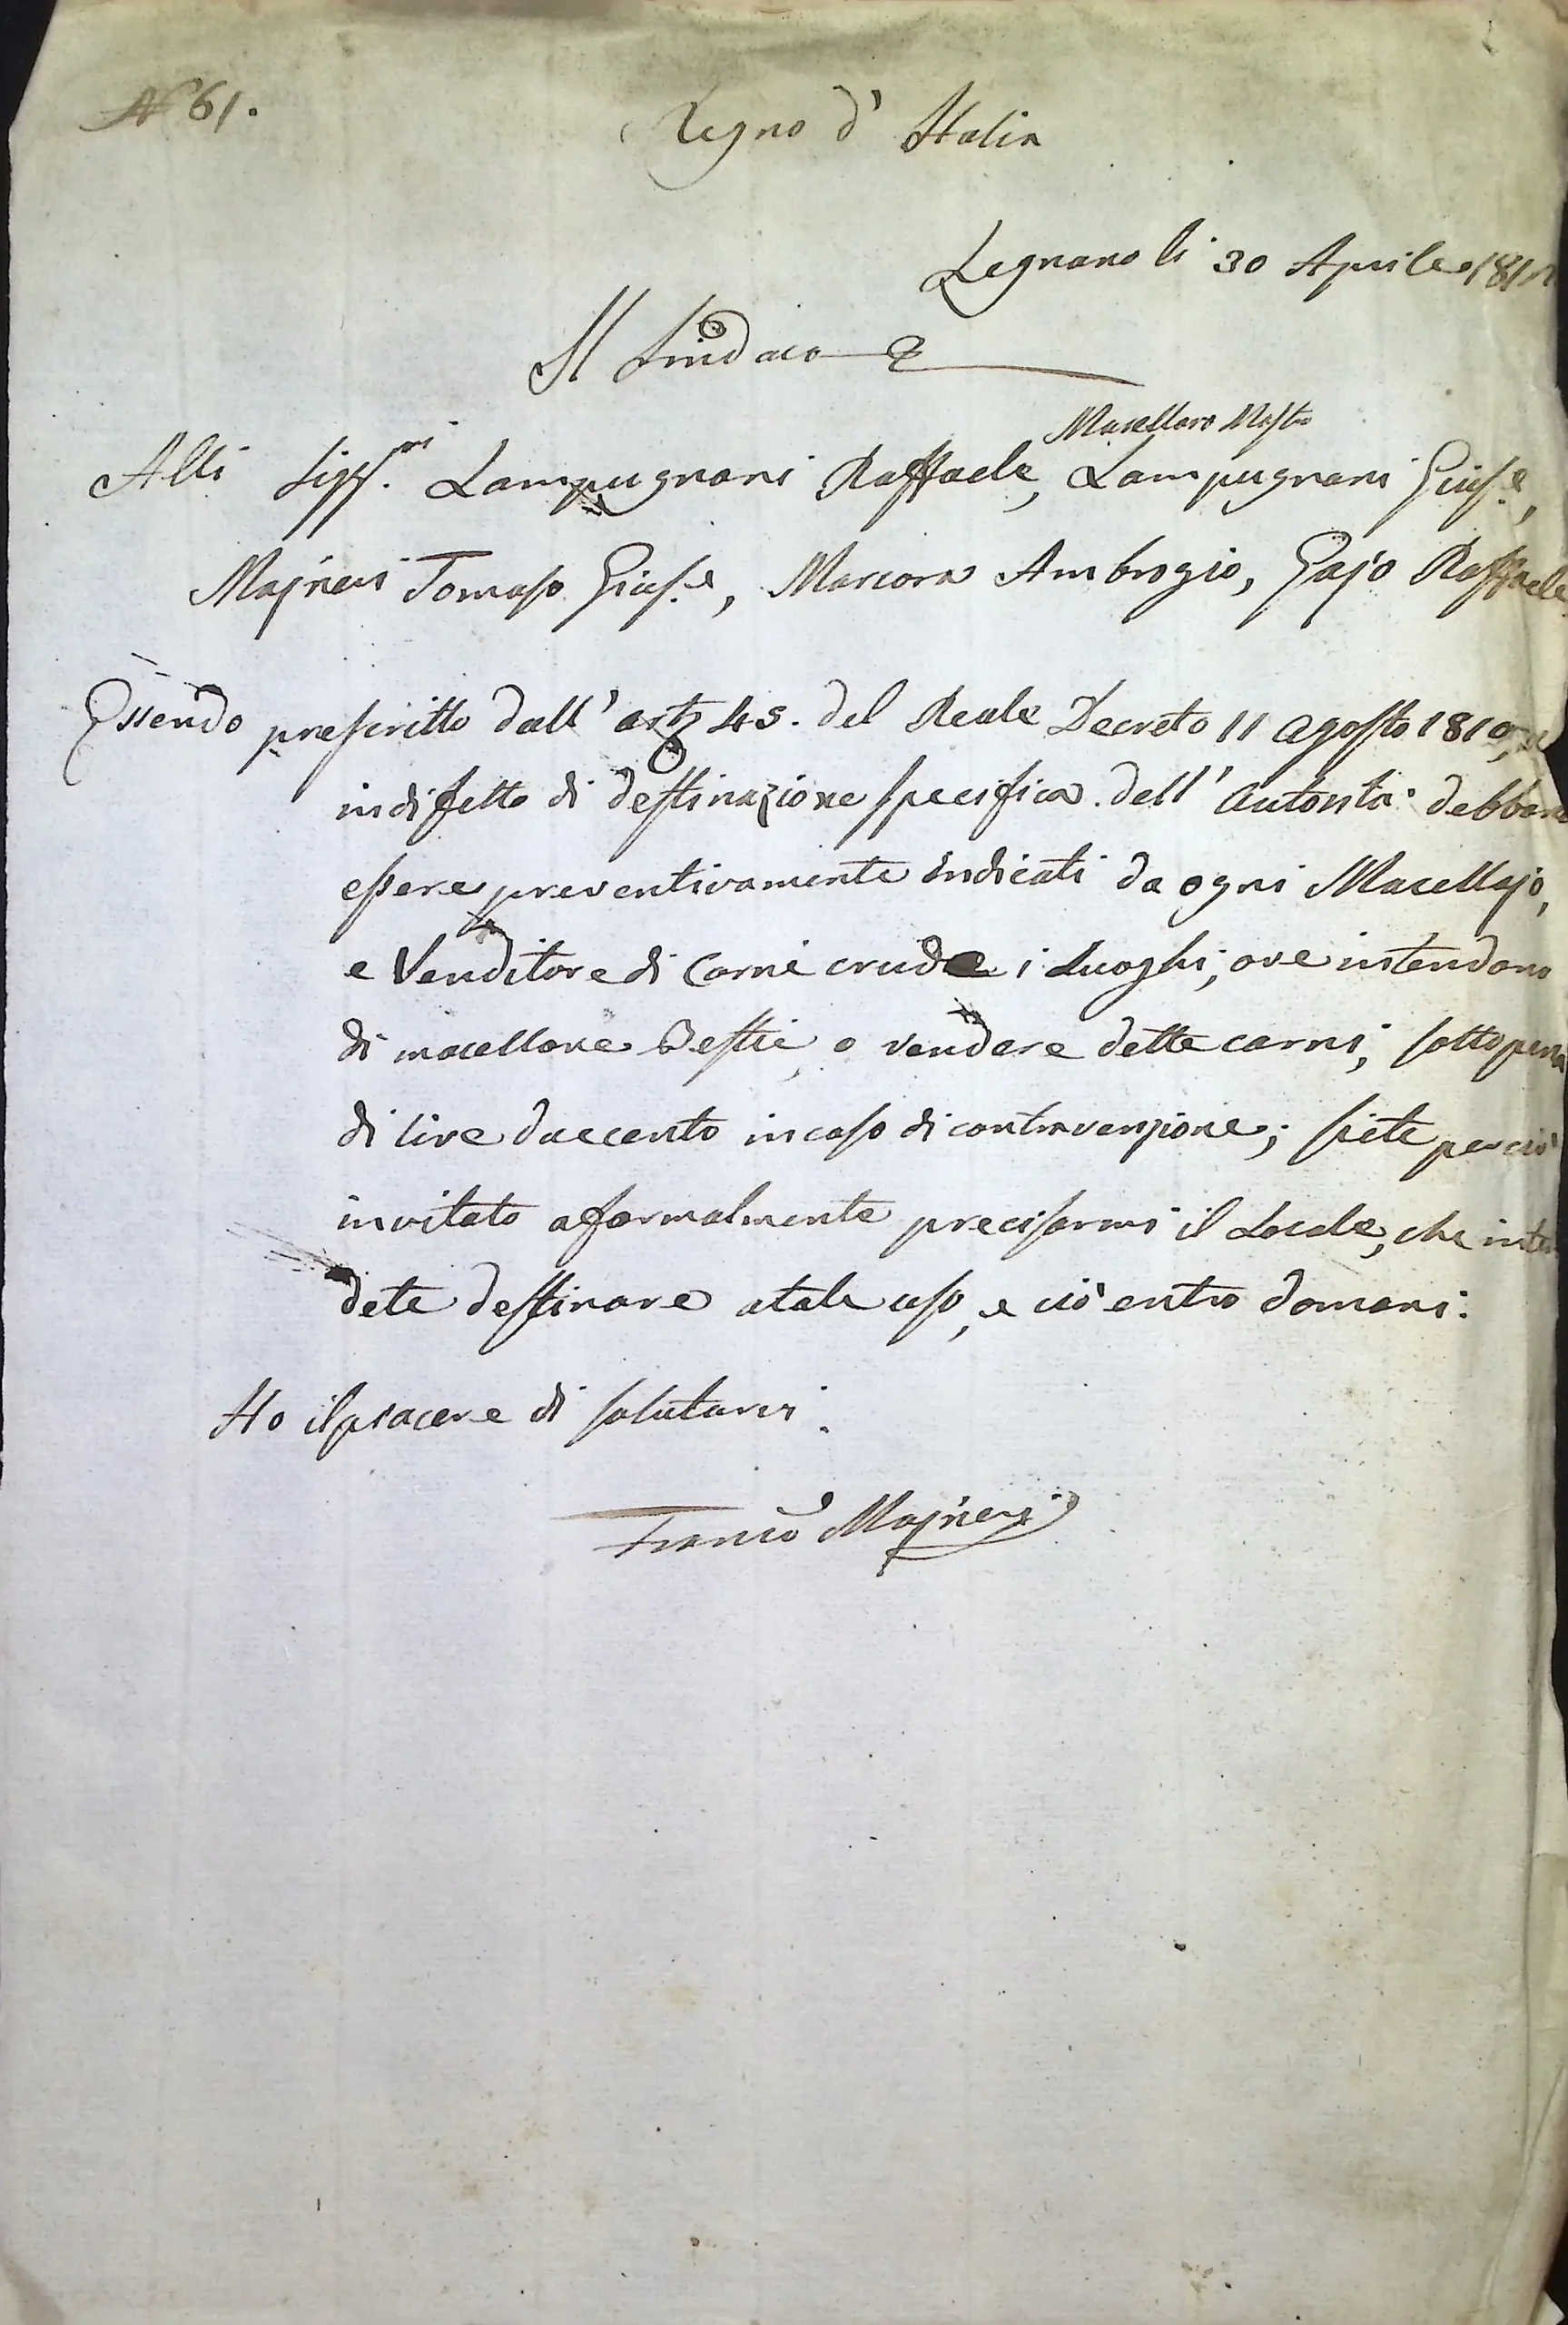 N° 61.
Regno d' Italia
Legnano li 30 Aprile 181
Il Sindaco
Macellaro Mastro
Alli Sigg.ri Lampugnani Raffaele, Lampugnani Gius.e,
Majneri Tomaso Gius.e, Marcora Ambrogio, Gajo Raffaele
Essendo prescritto dall' art. 45. del Reale Decreto 11 Agosto 1810,
in difetto di destinazione specifica dell' Autorità debbano
essere preventivamente indicati da ogni Macellajo,
e Venditore di Carni crude i Luoghi, ove intendono
di macellare Bestie, o vendere dette carni, sotto pena
di lire duecento in caso di contravenzione; siete perciò
invitato a formalmente precisarmi il Locale, che inten
dete destinare a tale uso, e ciò entro domani.
Ho il piacere di salutarvi.
Franco Majneri